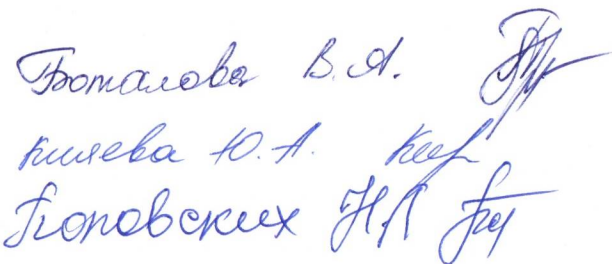 Боталова В. А.
Киляева Ю. А.
Поповских Н Л